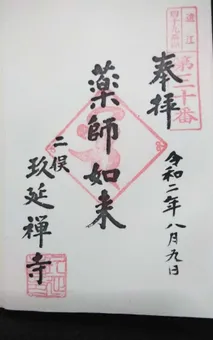 遠江
四十九薬師
第三十番
奉拝
令和二年八月九日
薬師如来
二俣
玖延禅寺